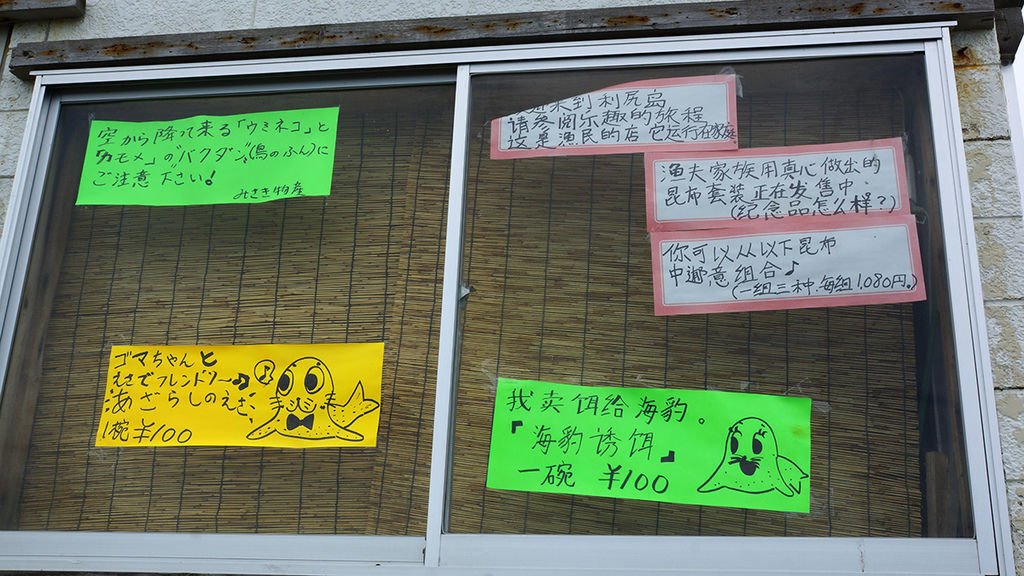 空から降って来る「ウミネコ」と
「カモメ」の「バクダン」(鳥のふん)に
ご注意下さい!
みさき物産
ゴマちゃんと
えさでフレンドリー♫
海あざらしのえさ、
1椀 ¥100
来到利尻岛
请参阅乐趣的旅程
这是渔民的店 它运行在家庭
渔夫家族用真心做出的
昆布套装正在发售中.
(纪念品怎么样?)
你可以从以下昆布
中随意组合♪
(一组三种.每组1,080円。)
我卖饵给海豹。
『海豹诱饵』
一碗 ¥100